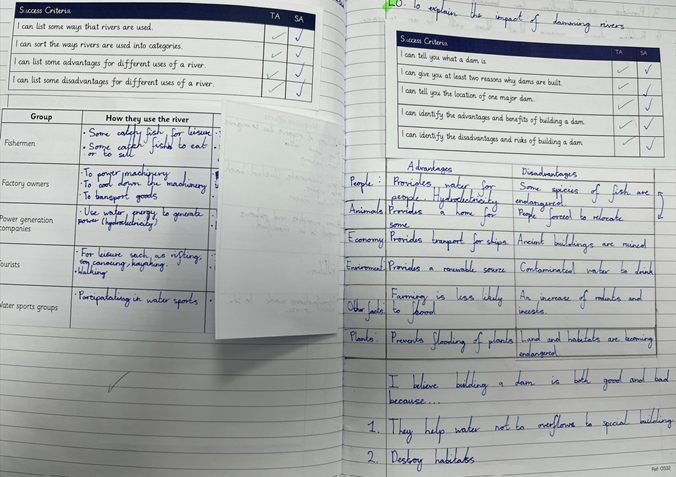 Success Criteria TA SA
I can list some ways that rivers are used.
I can sort the ways rivers are used into categories.
I can list some advantages for different uses of a river.
I can list some disadvantages for different uses of a river.
Group How they use the river
Fishermen
• Some catch fish for leisure
• Some catch fish to eat
or to sell
Factory owners
• To power machinery
• To cool down the machinery
• To transport goods
Power generation
companies
• Use water energy to generate
power (hydroelectricity)
Tourists
• For leisure such as rafting,
canoeing, kayaking.
• Walking
Water sports groups
• Participatating in water sports
L.O. To explain the impact of damming rivers
Success Criteria TA SA
I can tell you what a dam is.
I can give you at least two reasons why dams are built.
I can tell you the location of one major dam.
I can identify the advantages and benefits of building a dam.
I can identify the disadvantages and risks of building a dam
Advantages Disadvantages
People: Provides water for people. Hydroelectricity Some species of fish are endangered.
Animals Provides a home for some People forced to relocate
Economy Provides transport for ships. Ancient buildings are ruined
Enviroment Provides a renewable source Contaminated water to drink
Other facts: Farming is less likely to flood An increase of rodents and insests.
Plants: Prevents flooding of plants Land and habitats are becoming endangered.
I believe building a dam is both good and bad
because...
1. They help water not to overflows to special building
2. Destroy habitats